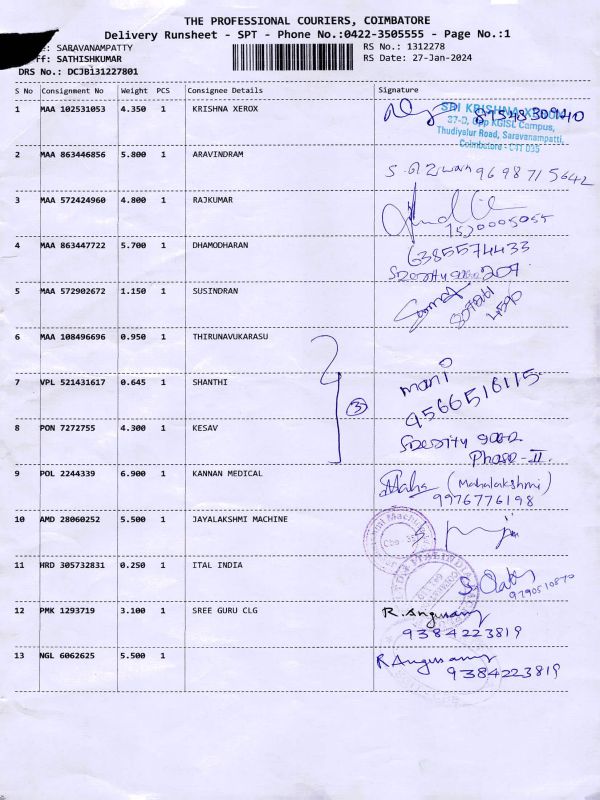 THE PROFESSIONAL COURIERS, COIMBATORE
Delivery Runsheet - SPT - Phone No.:0422-3505555 - Page No.:1
: SARAVANAMPATTY
RS No.: 1312278
ff: SATHISHKUMAR
RS Date: 27-Jan-2024
DRS No.: DCJB131227801
S No Consignment No Weight PCS Consignee Details Signature
1 MAA 102531053 4.350 1 KRISHNA XEROX
SRI KRISHNA XEROX
37-D, Opp KGISL Campus,
Thudiyalur Road, Saravanampatti,
Coimbatore - 641 035
8754830940
2 MAA 863446856 5.800 1 ARAVINDRAM
9698715642
3 MAA 572424960 4.800 1 RAJKUMAR
4 MAA 863447722 5.700 1 DHAMODHARAN
6385574433
207
5 MAA 572902672 1.150 1 SUSINDRAN
6 MAA 108496696 0.950 1 THIRUNAVUKARASU
7 VPL 521431617 0.645 1 SHANTHI
3
mani
9566516115
8 PON 7272755 4.300 1 KESAV
Phase-II.
9 POL 2244339 6.900 1 KANNAN MEDICAL
Maha (Mahalakshmi)
9976776198
10 AMD 28060252 5.500 1 JAYALAKSHMI MACHINE
11 HRD 305732831 0.250 1 ITAL INDIA
9790510870
12 PMK 1293719 3.100 1 SREE GURU CLG
R. Angusamy
9384223819
13 NGL 6062625 5.500 1
R Angusamy
9384223819